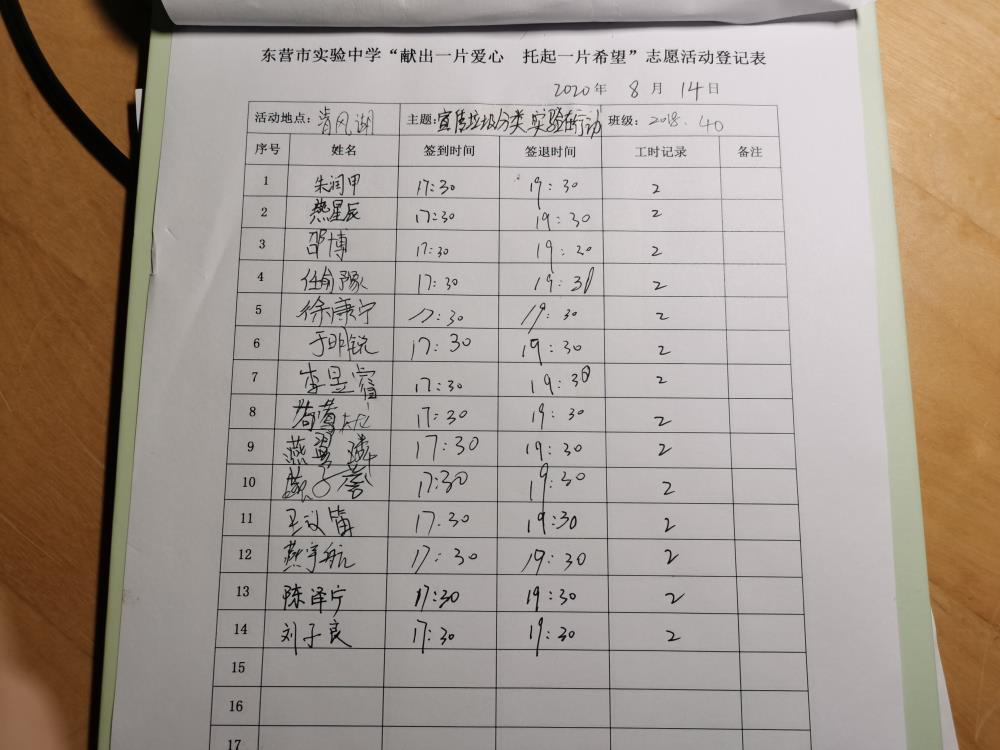 东营市实验中学“献出一片爱心 托起一片希望”志愿活动登记表
2020年 8月 14日
活动地点：清风湖 主题：宣传垃圾分类,实验在行动 班级：2018.40
序号 姓名 签到时间 签退时间 工时记录 备注
1 朱闰甲 17:30 19:30 2
2 燕星辰 17:30 19:30 2
3 邵博 17:30 19:30 2
4 任俞豫 17:30 19:30 2
5 徐康宁 17:30 19:30 2
6 于明锐 17:30 19:30 2
7 李昱睿 17:30 19:30 2
8 17:30 19:30 2
9 燕 17:30 19:30 2
10 17:30 19:30 2
11 王议笛 17.30 19:30 2
12 燕宇航 17:30 19:30 2
13 陈泽宁 17:30 19:30 2
14 刘子良 17:30 19:30 2
15
16
17